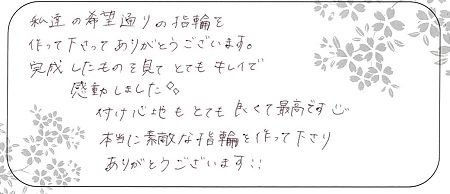 私達の希望通りの指輪を
作って下さってありがとうございます。
完成したものを見てとてもキレイで
感動しました。
付け心地もとても良くて最高です
本当に素敵な指輪を作って下さり
ありがとうございます!!